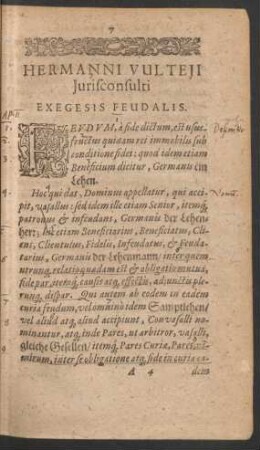 7
HERMANNI VULTEJI
Jurisconsulti
EXEGESIS FEUDALIS.
FEVDVM, à fide dictum, est usus-
fructus quidam rei immobilis sub
conditione fidei: quod idem etiam
Beneficium dicitur, Germanis ein
Lehen.
Hoc qui dat, Dominus appellatur, qui acci-
pit, vasallus: sed idem ille etiam Senior, itemq́,
patronus & infeudans, Germanis der Lehen
herr; hic etiam Beneficiarius, Beneficiatus, Cli-
ens, Clientulus, Fidelis, Infeudatus, & feuda-
tarius, Germanis der Lehenmann/ inter quem
utrunq, relatio quædam est & obligatio mutua,
fide par, itemq́, causis atq, effectis, adjunctis ple-
runq, dispar. Qui autem ab eodem in eadem
curia feudum, vel omnino idem Samptlehen/
vel aliud atq, aliud accipiunt, Convasalli no-
minantur, atq, inde Pares, ut arbitror, vasalli,
gleiche Gesellen/ itemq́, Pares Curiæ,
inter se obligatione atq, fide in curia
A 4